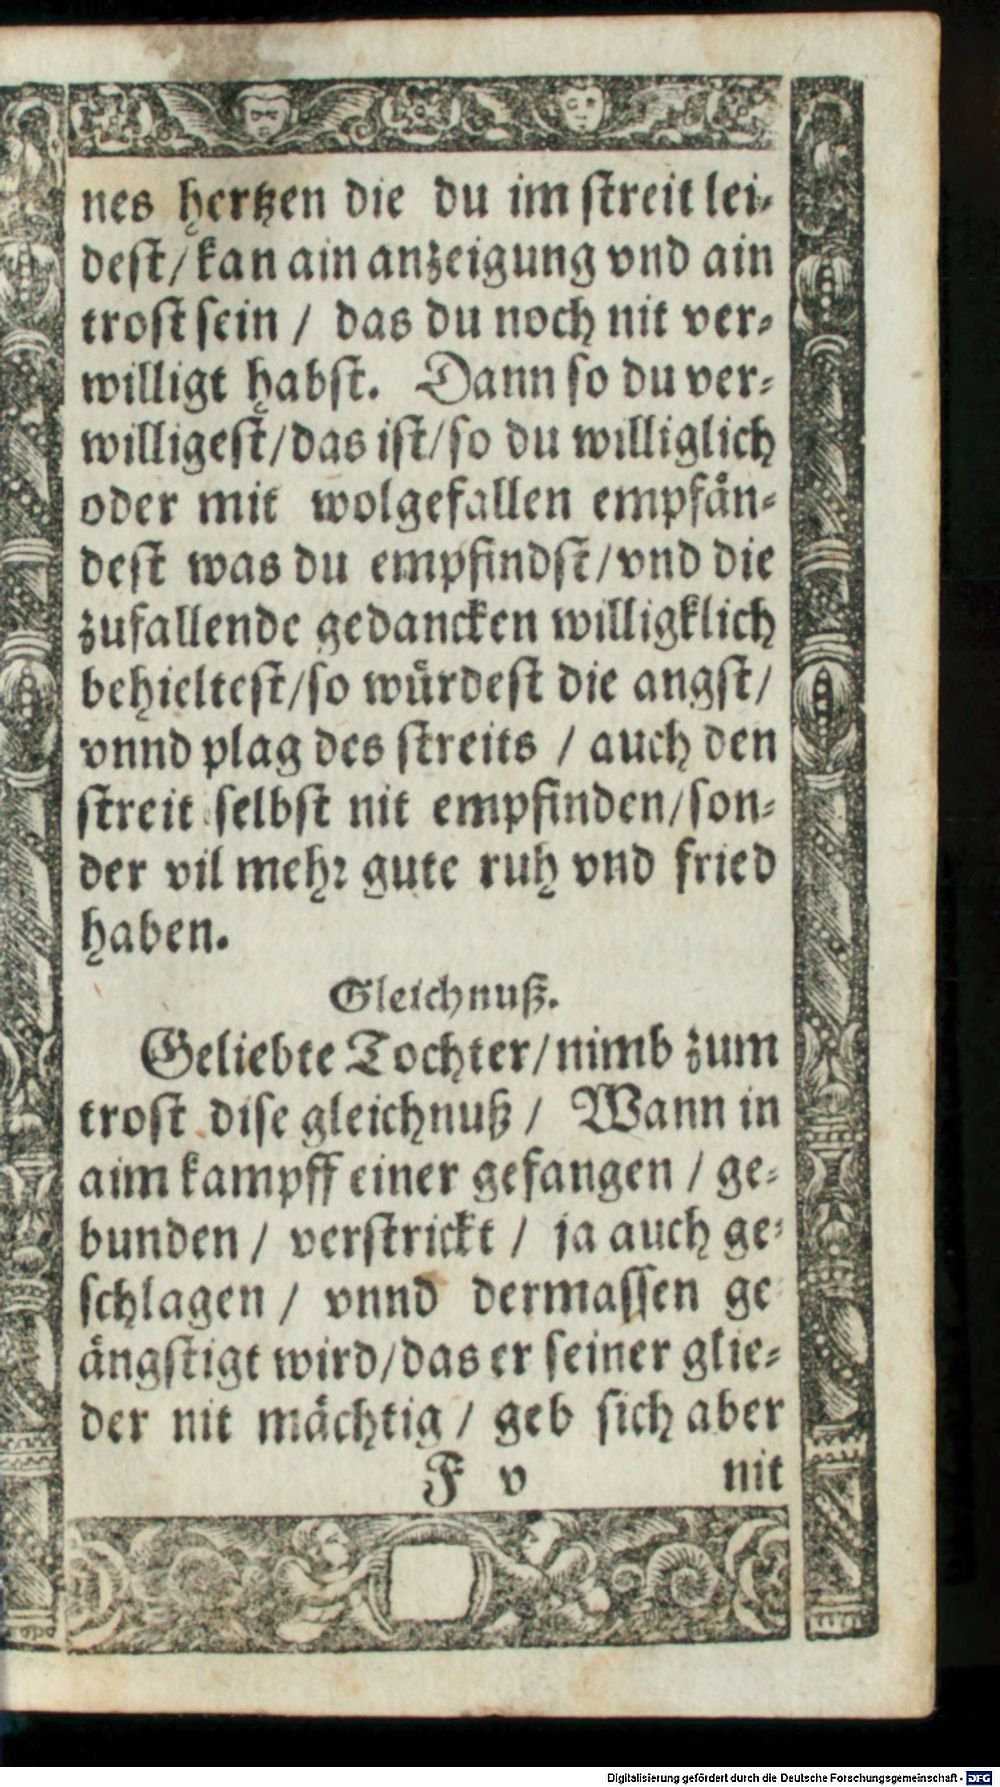 nes hertzen die du im streit lei-
dest/kan ain anzeigung vnd ain
trost sein / das du noch nit ver-
willigt habst. Dann so du ver-
willigest/das ist/so du williglich
oder mit wolgefallen empfän-
dest was du empfindst/vnd die
zufallende gedancken willigklich
behieltest/so würdest die angst/
vnnd plag des streits / auch den
streit selbst nit empfinden/son-
der vil mehr gute ruh vnd fried
haben.
Gleichnuß.
Geliebte Tochter/nimb zum
trost dise gleichnuß / Wann in
aim kampff einer gefangen / ge-
bunden / verstrickt / ja auch ge-
schlagen / vnnd dermassen ge
ängstigt wird/das er seiner glie-
der nit mächtig / geb sich aber
F v nit
Digitalisierung gefördert durch die Deutsche Forschungsgemeinschaft - DFG